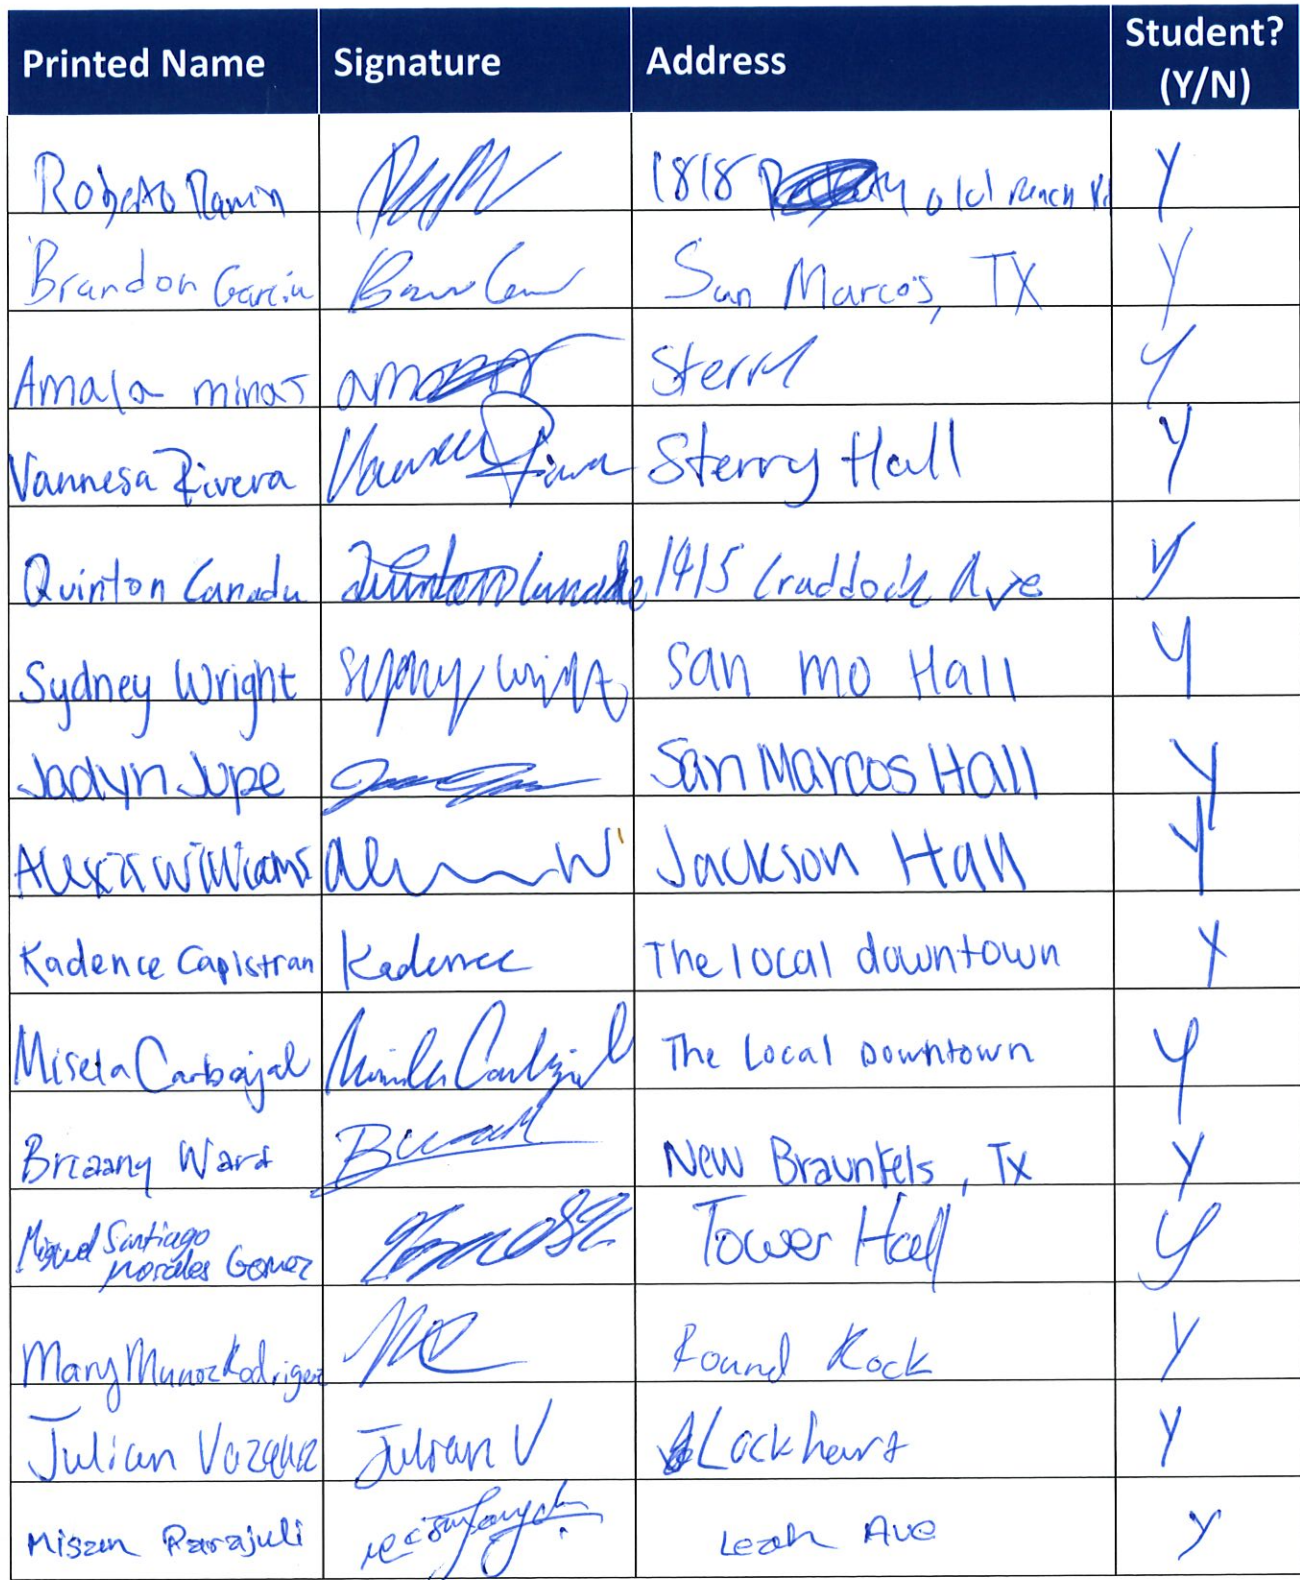 Printed Name Signature Address Student? (Y/N)
Roberto 1818 old Ranch Y
Brandon Garcia San Marcos, TX Y
Amala minas Sterry Y
Vannesa Rivera Sterry Hall Y
Quinton Canadu Quinton 1415 Craddock Ave Y
Sydney Wright Sydney Wright San mo Hall Y
Jadyn Jupe San Marcos Hall Y
Alexia Williams Jackson Hall Y
Kadence Capistran Kadence The local downtown Y
Carbajal The Local Downtown Y
Ward New Braunfels, Tx Y
Miguel Santiago
Morales Gomez Tower Hall Y
Mary Munoz Rodriguez Round Rock Y
Julian Vazquez Julian V Lockhart Y
Parajuli Leah Ave Y